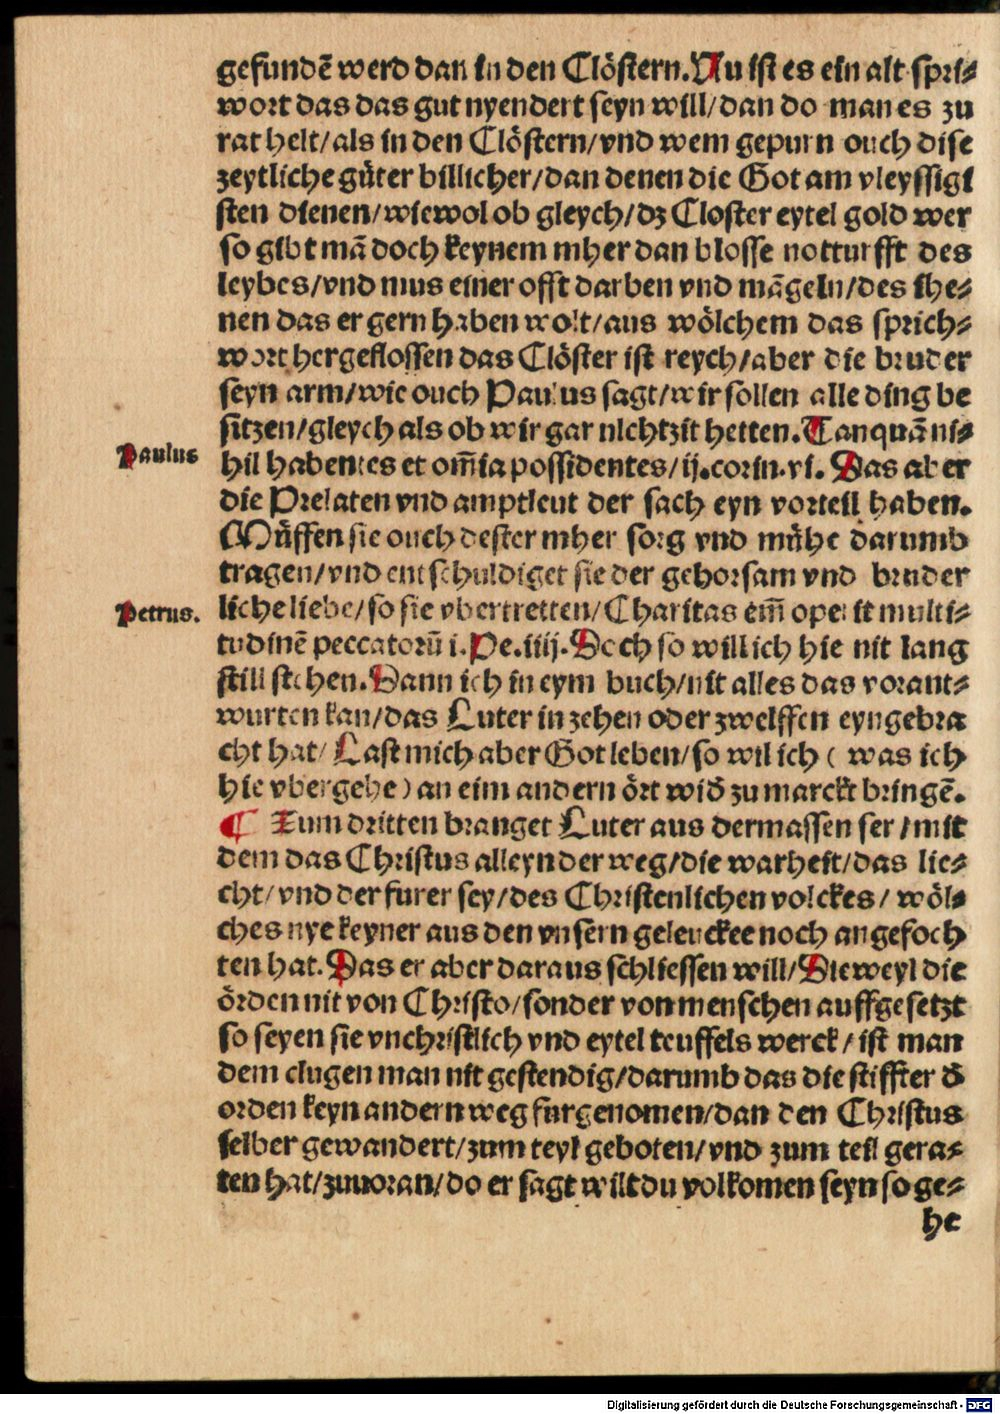 gefundē werd dan in den Clöstern. Nu ist es ein alt spri⸗
wort das das gut nyendert seyn will/ dan do man es zu
rat helt/ als in den Clöstern/ vnd wem gepurn ouch dise
zeytliche gůter billicher/ dan denen die Got am vleyssigi
sten dienen/ wiewol ob gleych/ dz Closter eytel gold wer
so gibt mā doch keynem mher dan blosse notturfft des
leybes/ vnd mus einer offt darben vnd māgeln/ des ihe⸗
nen das er gern haben wolt/ aus wölchem das sprich⸗
wort hergeflossen das Clöster ist reych/ aber die bruder
seyn arm/ wie ouch Paulus sagt/ wir sollen alle ding be
sitzen/ gleych als ob wir gar nichtzit hetten. Tanquā ni⸗
Paulus
hil habentes et om̄ia possidentes/ ij. corin. vi. Das aber
die Prelaten vnd amptleut der sach eyn vorteil haben.
Můssen sie ouch dester mher sorg vnd můhe darumb
tragen/ vnd entschuldiget sie der gehorsam vnd bruder
Petrus.
liche liebe/ so sie vbertretten/ Charitas em̄ operit multi⸗
tudinē peccatorū i. Pe. iiij. Doch so will ich hie nit lang
still stehen. Dann ich in eym buch/ nit alles das vorant⸗
wurten kan/ das Luter in zehen oder zwelffen eyngebra
cht hat/ Last mich aber Got leben/ so wil ich ( was ich
hie vbergehe ) an eim andern ört wid̄ zu marckt bringē.
¶ Zum dritten branget Luter aus dermassen ser / mit
dem das Christus alleyn der weg/ die warheit/ das lie⸗
cht/ vnd der furer sey/ des Christenlichen volckes/ wöl⸗
ches nye keyner aus den vnsern geleuckee noch angefoch
ten hat. Das er aber daraus schliessen will/ Dieweyl die
örden nit von Christo/ sonder von menschen auffgesetzt
so seyen sie vnchristlich vnd eytel teuffels werck/ ist man
dem clugen man nit gestendig/ darumb das die stiffter d̄
orden keyn andern weg furgenomen/ dan den Christus
selber gewandert/ zum teyl geboten/ vnd zum teil gera⸗
ten hat/ zuuoran/ do er sagt wilt du volkomen seyn so ge⸗
he
Digitalisierung gefördert durch die Deutsche Forschungsgemeinschaft - DFG